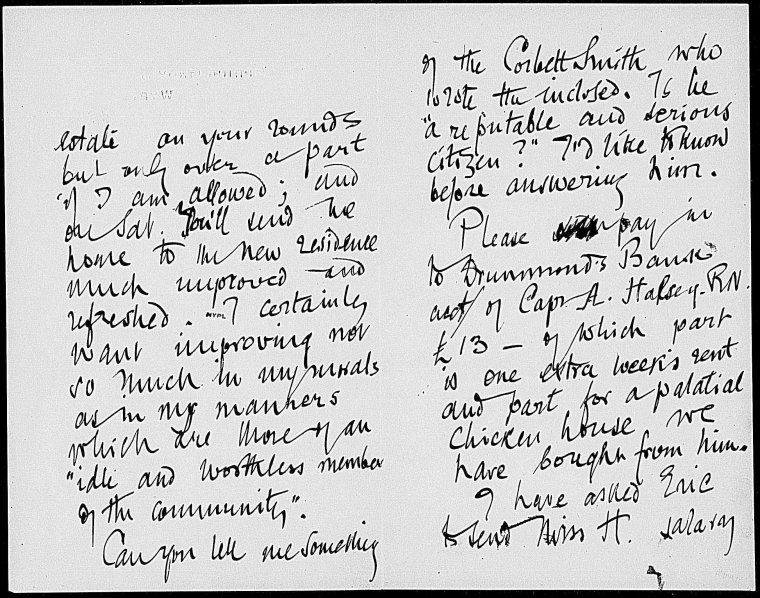 estate on your rounds
but only over a part
if I am allowed; and
on Sat. You'll send me
home to the new residence
much improved and
refreshed. I certainly
want improving not
so much in my morals
as in my manners
which are those of an
"idle and worthless member
of the community".
Can you tell me something
of the Corbett Smith who
wrote the inclosed. Is he
"a reputable and serious
citizen?" I'd like to know
before answering him.
Please pay in
to Drummonds Bank
acct/ of Capt A. Halsey. R.N.
£13 — of which part
is one extra week's rent
and part for a palatial
chicken house we
have bought from him.
I have asked Eric
to send Miss H. salary